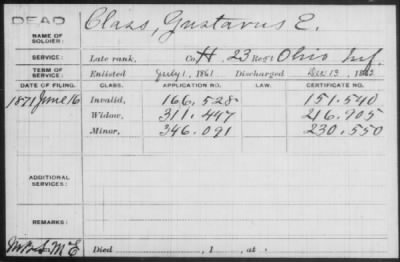 DEAD
NAME OF SOLDIER: Class, Gustavus E.
SERVICE: Late rank, Co. H. 23 Reg't Ohio Inf.
TERM OF SERVICE: Enlisted July 1, 1861 Discharged Dec 13, 1862
DATE OF FILING. CLASS. APPLICATION NO. LAW. CERTIFICATE NO.
1871 June 16 Invalid, 166.528 151.540
Widow, 311.447 216.905
Minor, 346.091 230.550
ADDITIONAL SERVICES:
REMARKS:
Died , 1 , at